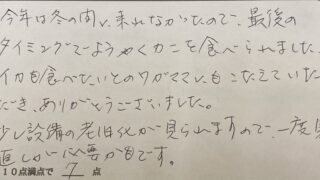 今年は冬の間に来れなかったので、最後の
タイミングでようやくカニを食べられました。
イカも食べたいとのワガママにもこたえていた
だき、ありがとうございました。
少し設備の老旧化が見られますので、一度見
直しが必要かもです。
10点満点で 7 点